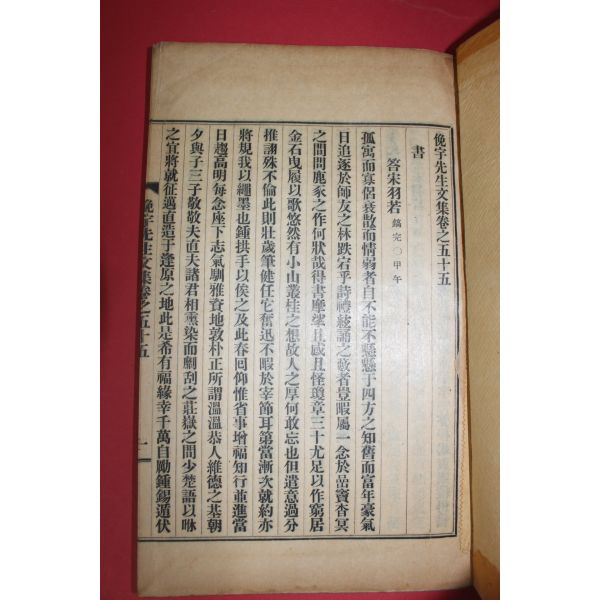 俛宇先生文集卷之五十五
書
答宋羽若 鎬完○甲午
孤寓而寡侶衰散而情弱者自不能不懸懸于四方之知舊而富年豪氣
日追逐於師友之林跌宕乎詩禮絃誦之敎者豈暇屬一念於品竇杳冥
之間問鹿豕之作何狀哉得書摩挲且感且怪瓊章三十尤足以作窮居
金石曳履以歌悠然有小山叢桂之想故人之厚何敢忘也但遣意過分
推詡殊不倫此則壯歲筆健任它奮迅不暇於宰節耳第當漸次就約亦
將規我以繩墨也鍾拱手以俟之及此春回仰惟省事增福知行並進當
日趨高明每念座下志氣馴雅資地敦朴正所謂溫溫恭人維德之基朝
夕與子三子敬敬夫直夫諸君相薰染而劘刮之莊嶽之間少楚語以咻
之宜將就征邁直造于逢原之地此是希有福緣幸千萬自勵鍾錫遁伏
俛宇先生文集卷之五十五
一